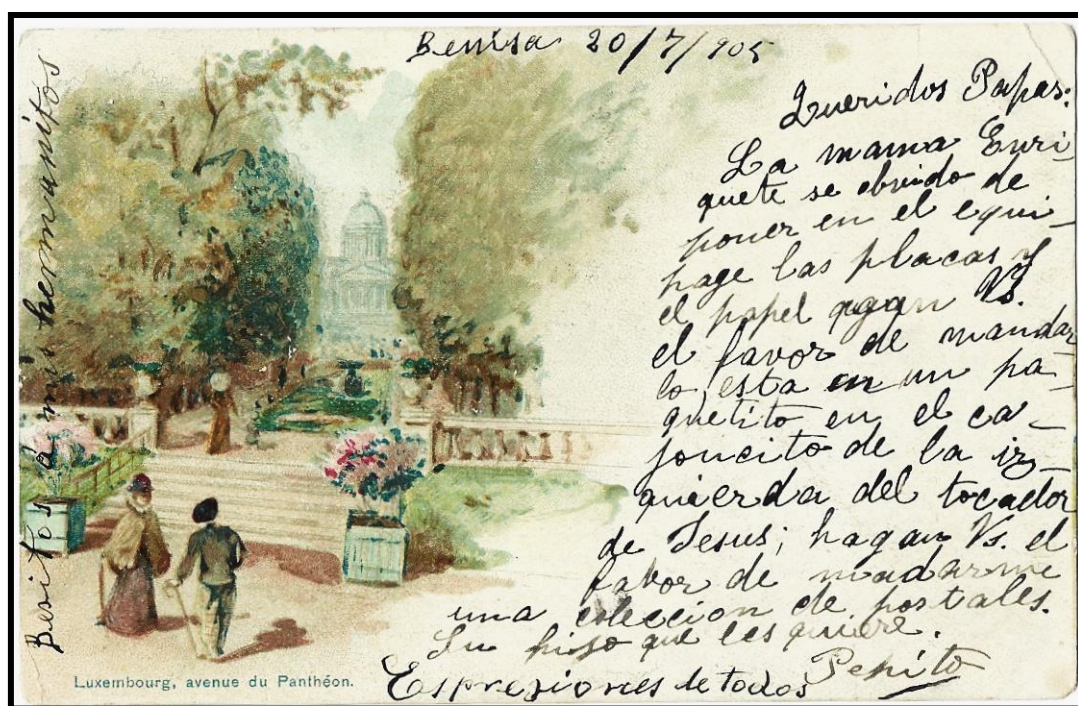 Benisa 20/7/905
Queridos Papas:
La mama Enri
quete se olvido de
poner en el equi-
page las placas y
el papel agan Vs.
el favor de mandar
lo esta en un pa-
quetito en el ca-
joncito de la iz-
quierda del tocador
de Jesus; hagan Vs. el
favor de madarme
una coleccion de postales.
Su hijo que les quiere.
Pepito
Espresiones de todos
Besitos a mis hermanitos
Luxembourg, avenue du Panthéon.